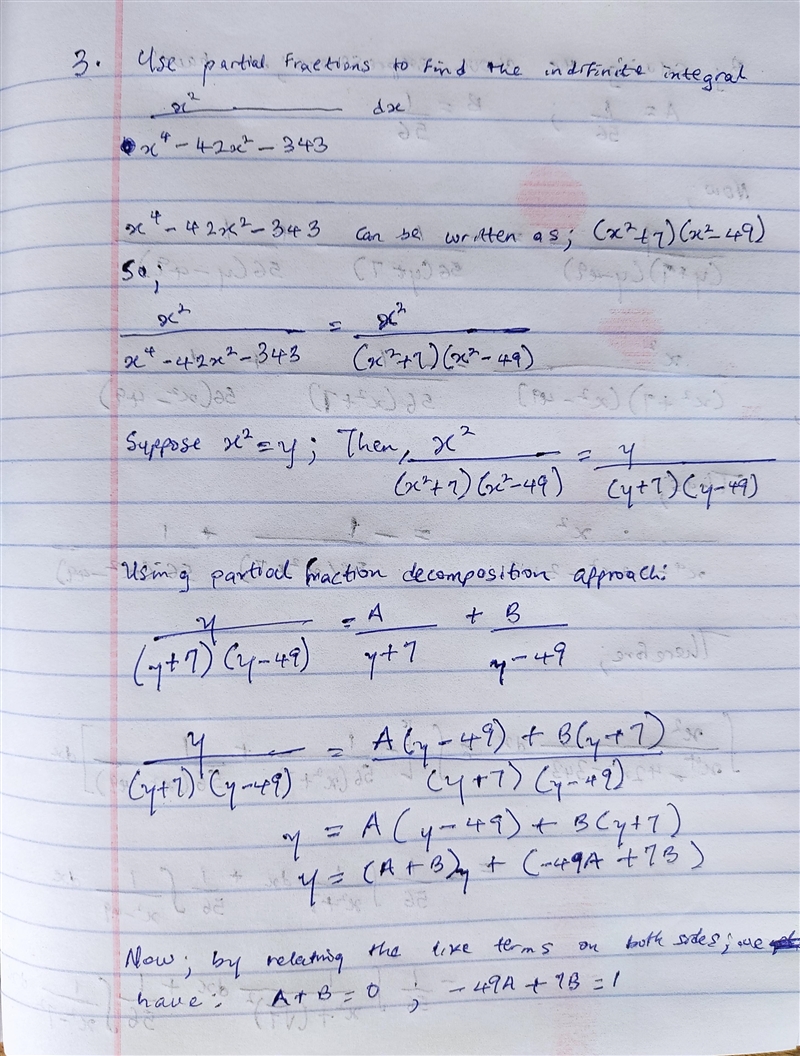 3. Use partial fractions to find the indifinite integral
x²/(x⁴ - 42x² - 343) dx
x⁴ - 42x² - 343 can be written as; (x²+7)(x²-49)
So;
x²/(x⁴ - 42x² - 343) = x²/((x²+7)(x²-49))
Suppose x² = y; Then, x²/((x²+7)(x²-49)) = y/((y+7)(y-49))
Using partial fraction decomposition approach:
y/((y+7)(y-49)) = A/(y+7) + B/(y-49)
y/((y+7)(y-49)) = (A(y-49) + B(y+7))/((y+7)(y-49))
y = A(y-49) + B(y+7)
y = (A+B)y + (-49A + 7B)
Now; by relating the like terms on both sides; we
have: A+B = 0 ; -49A + 7B = 1